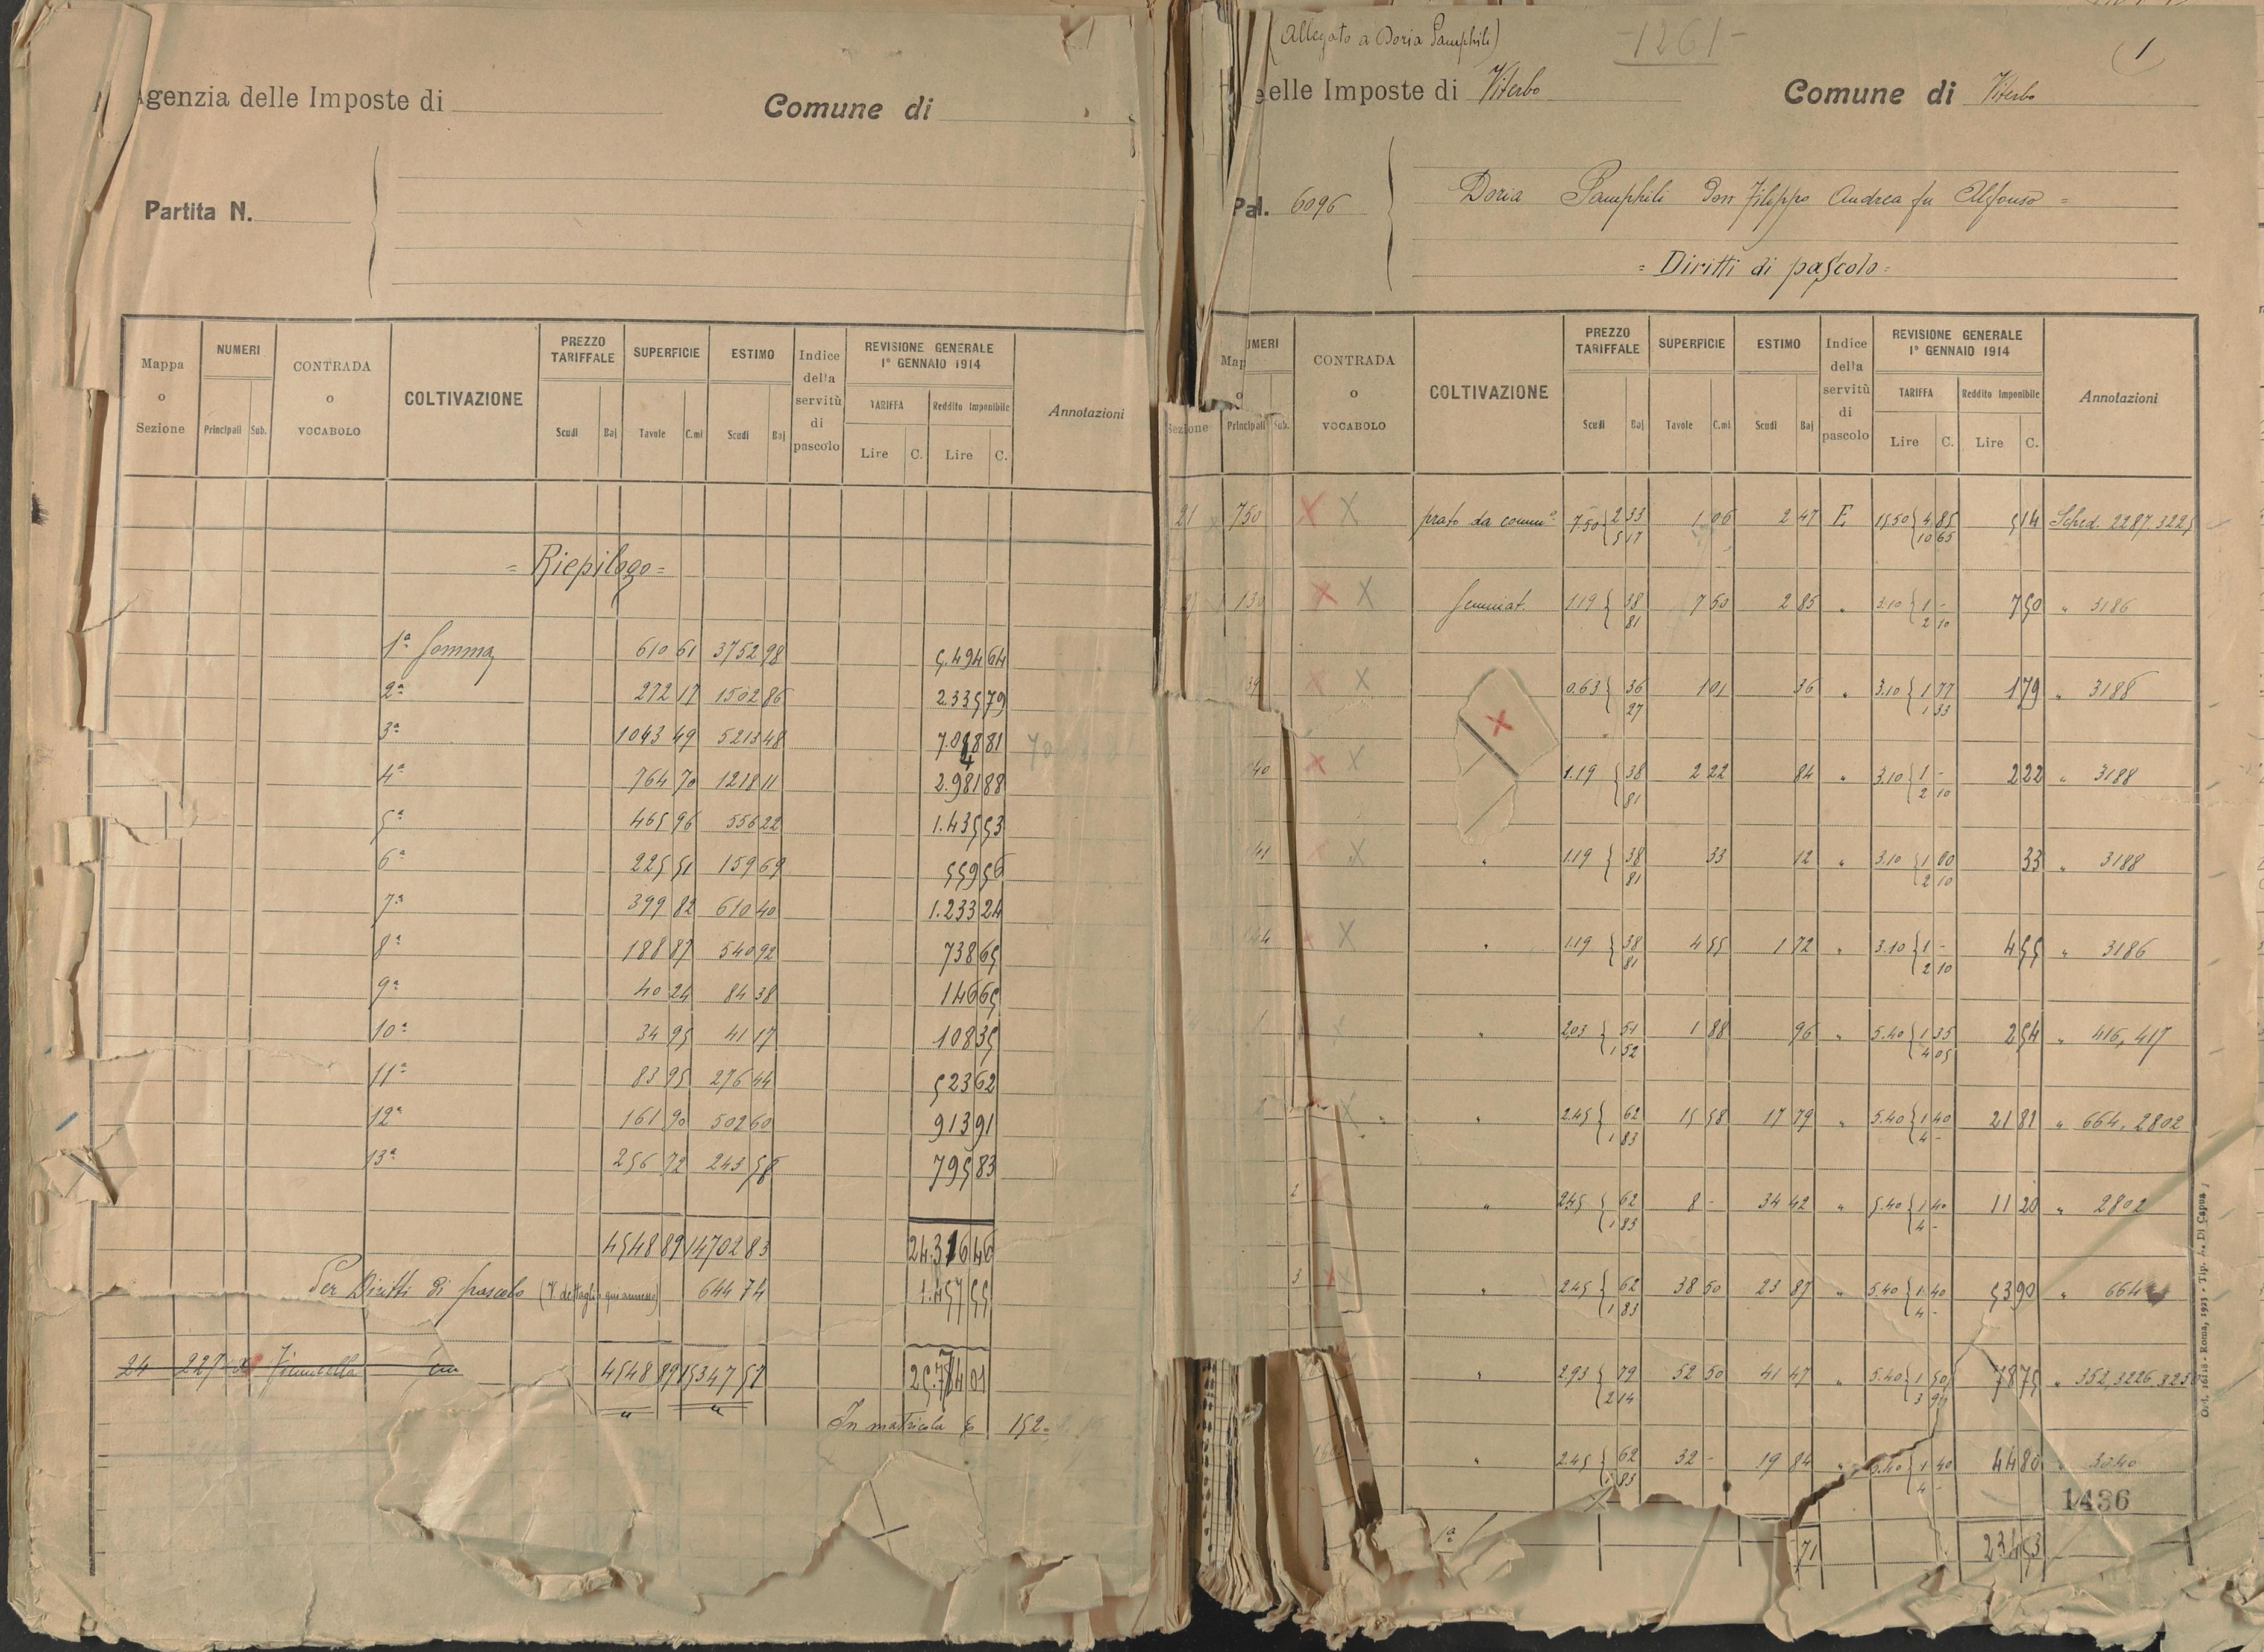 Agenzia delle Imposte di
Comune di
Partita N.
Mappa o Sezione
NUMERI
Principali Sub.
CONTRADA o VOCABOLO
COLTIVAZIONE
PREZZO TARIFFALE
Scudi Baj
SUPERFICIE
Tavole C.mi
ESTIMO
Scudi Baj
Indice della servitù di pascolo
REVISIONE GENERALE
1° GENNAIO 1914
TARIFFA
Lire C.
Reddito Imponibile
Lire C.
Annotazioni
= Riepilogo =
1ª Somma 610 61 3752 98 5.494 64
2ª 272 17 1502 86 2.335 79
3ª 1043 49 5213 48
4ª 764 70 1218 11 2.981 88
5ª 465 96 556 22 1.435 53
6ª 225 51 159 69 559 56
7ª 399 82 610 40 1.233 24
8ª 188 87 540 92 738 65
9ª 40 24 84 38 146 65
10ª 34 95 41 17 108 35
11ª 83 95 276 44 523 62
12ª 161 90 502 60 913 91
13ª 256 72 243 58 795 83
4548 89 14702 83 24.316 46
Per Diritti di pascolo (V. dettaglio qui annesso) 644 74 1.457 55
24 227
4548 89 15347 57 25.774 01
In matricola £ 152
(Allegato a Doria Pamphili)
-1261-
1
elle Imposte di Viterbo
Comune di Viterbo
Pal. 6096
Doria Pamphili Don Filippo Andrea fu Alfonso =
= Diritti di pascolo =
Map o Sezione
UMERI
Principali Sub.
CONTRADA o VOCABOLO
COLTIVAZIONE
PREZZO TARIFFALE
Scudi Baj
SUPERFICIE
Tavole C.mi
ESTIMO
Scudi Baj
Indice della servitù di pascolo
REVISIONE GENERALE
1° GENNAIO 1914
TARIFFA
Lire C.
Reddito Imponibile
Lire C.
Annotazioni
21 750 X X prato da comm.e 7.50 2 33 1 06 2 47 E 15.50 4 85 5 14 Sched. 2287.3225
5 17 10 65
130 X X Seminat. 1.19 38 7 50 2 85 " 3.10 1 - 7 50 " 3186
81 2 10
39 X X 0.63 36 1 01 36 " 3.10 1 77 1 79 " 3188
27 1 33
X
40 X X 1.19 38 2 22 84 " 3.10 1 - 2 22 " 3188
81 2 10
41 X X " 1.19 38 33 12 " 3.10 1 00 33 " 3188
81 2 10
44 X X " 1.19 38 4 55 1 72 " 3.10 1 - 4 55 " 3186
81 2 10
1 X " 2.03 51 1 88 96 " 5.40 1 35 2 54 " 416, 417
1 52 4 05
X X " 2.45 62 15 58 17 79 " 5.40 1 40 21 81 " 664, 2802
1 83 4 -
2 X " 2.45 62 8 - 34 42 " 5.40 1 40 11 20 " 2802
1 83 4 -
3 X X " 2.45 62 38 50 23 87 " 5.40 1 40 53 90 " 664
1 83 4 -
" 2.93 79 52 50 41 47 " 5.40 1 50 78 75 " 352,3226,
2 14 3 90
" 2.45 62 32 - 19 84 " 5.40 1 40 44 80 " 3040
1 83 4 -
1436
1ª 71 234 53
Ord. 1618 - Roma, 1923 - Tip. A. Di Capua